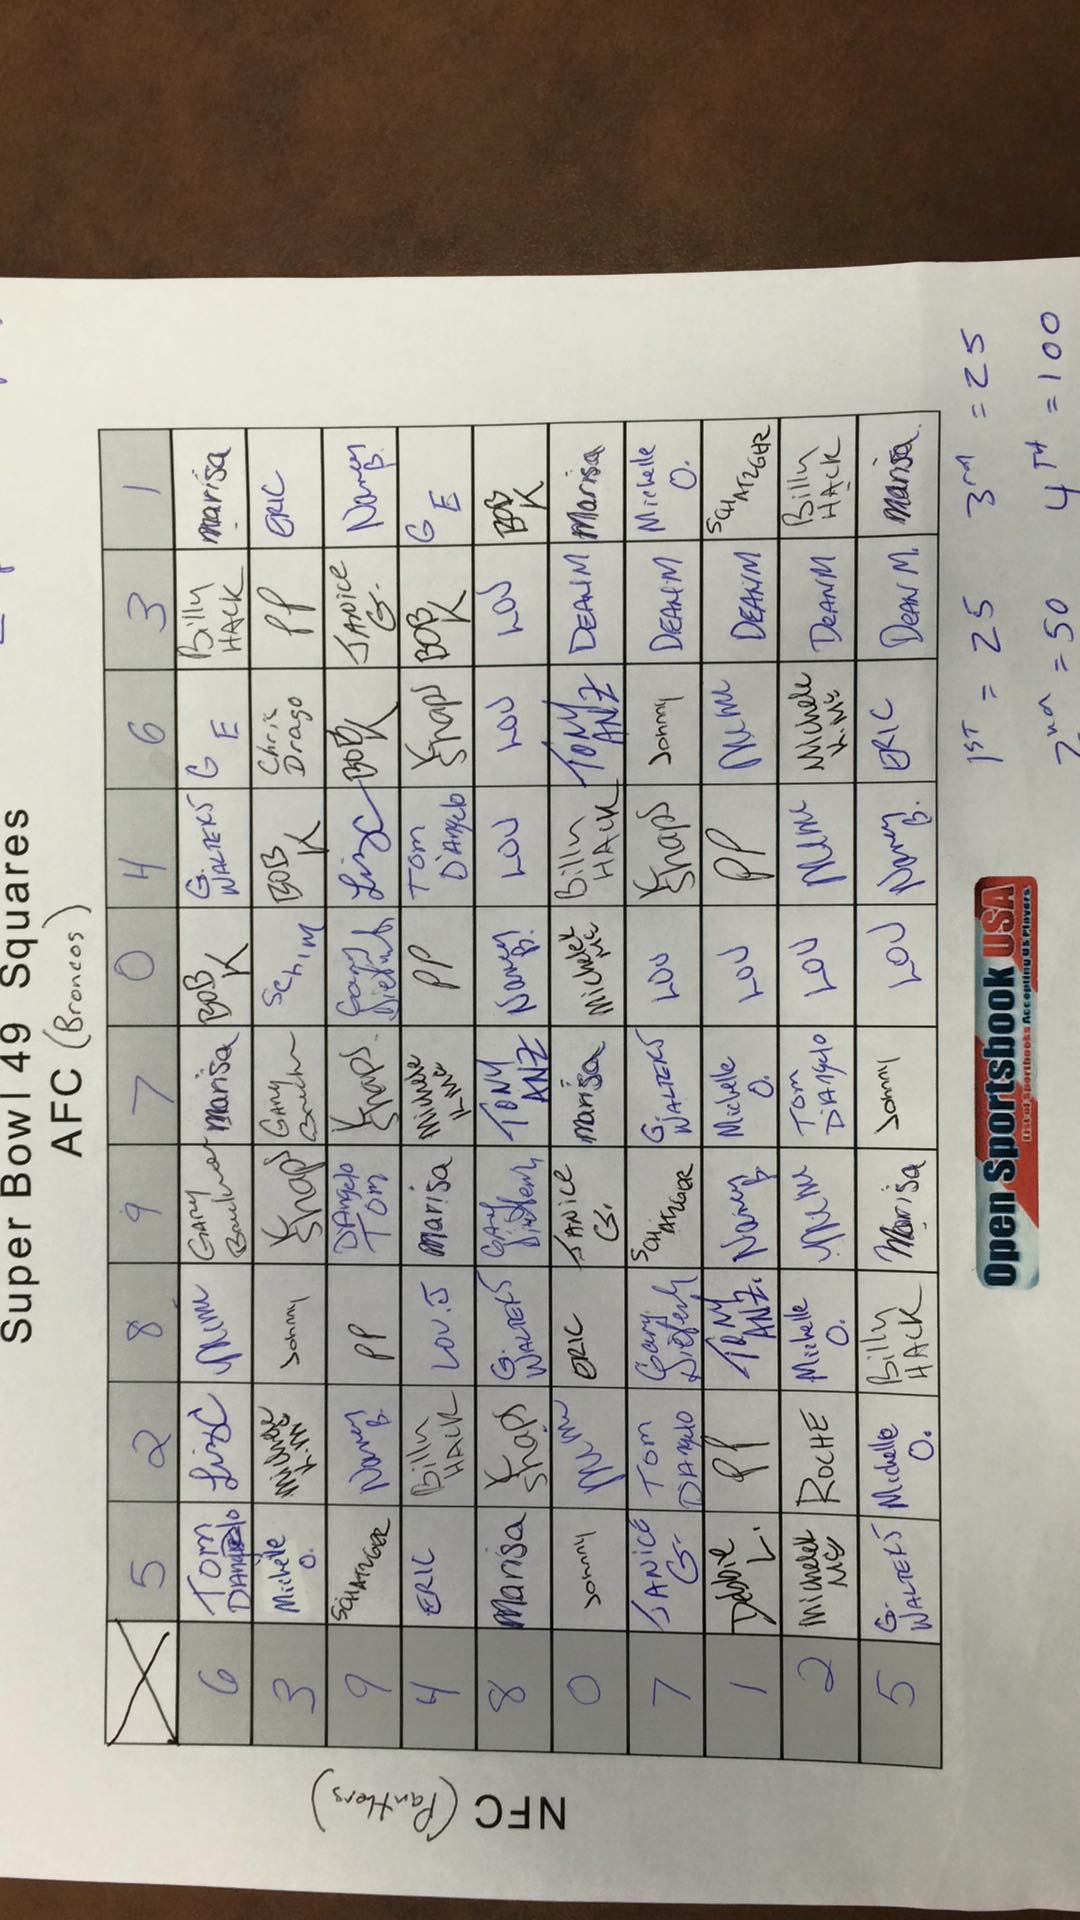 Super Bowl 49 Squares
AFC (Broncos)
NFC (Panthers)
5 2 8 9 7 0 4 6 3 1
6 Tom DAngelo LizC Mimi Gary Marisa BOB K G. WALTERS G E Billy HACK Marisa
3 Michelle O. Michele K.M Johnny Y Shaps Gary SchiM BOB K Chris Drago PP ERIC
9 SCHATZGER Nancy B. PP DAngelo Tom Y Shaps. Gary LizC BOB K JANICE G. Nancy B.
4 ERIC Billy HACK LOU.J Marisa Michele K.Mc PP Tom D'Angelo Y Shaps BOB K G E
8 Marisa Y Shaps G. WALTERS Gary TONY ANZ Nancy B. LOU LOU LOU BOB K
0 Johnny Mimi ERIC JANICE G. Marisa Michele K Mc Billy HACK TONY ANZ DEAN M Marisa
7 JANICE G. Tom DAngelo Gary SCHATZGER G. WALTERS LOU Y Shaps Johnny DEAN M Michelle O.
1 Debbie L. PP TONY ANZ. Nancy B Michelle O. LOU PP Mimi DEAN M SCHATZGER
2 Michele K Mc ROCHE Michelle O. Mimi Tom D'Angelo LOU Mimi Michele K.Mc DEAN M Billy HACK
5 G. WALTERS Michelle O. Billy HACK Marisa Johnny LOU Nancy B. ERIC DEAN M. Marisa.
Open Sportsbook USA
List of Sportbooks Accepting US Players
1ST = 25 3rd = 25
2nd = 50 4TH = 100